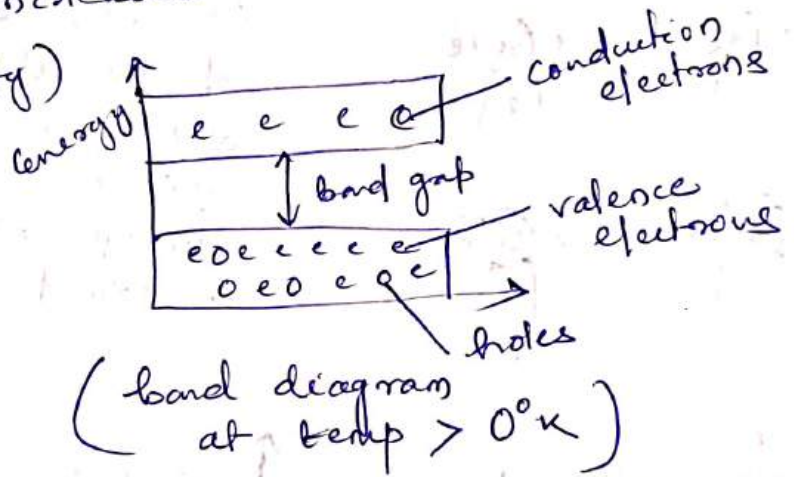 y)
energy
e e e e
conduction
electrons
band gap
valence
electrons
e o e e e e e
o e o e o e
holes
(band diagram
at temp > 0°K)